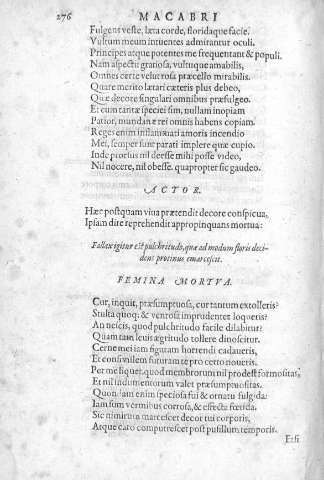 276 MACABRI
Fulgent veste, læta corde, floridaque facie.
Vultum meum intuentes admirantur oculi.
Principes atque potentes me frequentant & populi.
Nam aspectu gratiosa, vultuque amabilis,
Omnes certe velut rosa præcello mirabilis.
Quare merito lætari cæteris plus debeo,
Quæ decore singulari omnibus præfulgeo.
Et cum tantæ speciei sim, nullam inopiam
Patior, mundanæ rei omnis habens copiam.
Reges enim inflammati amoris incendio
Mei, semper sunt parati implere quæ cupio.
Inde prorsus nil deesse mihi posse video,
Nil nocere, nil obesse. quapropter sic gaudeo.
ACTOR.
Hæc postquam viua prætendit decore conspicua,
Ipsam dire reprehendit appropinquans mortua:
Fallax igitur est pulchritudo, quæ ad modum floris deci-
dens protinus emarcescit.
FEMINA MORTVA.
Cur, inquit, præsumptuosa, cur tantum extolleris?
Stulta quoq; & ventosa imprudenter loqueris?
An nescis, quod pulchritudo facile dilabitur?
Quam tam leuis ægritudo tollere dinoscitur.
Cerne mei iam figuram horrendi cadaueris,
Et consimilem futuram te pro certo noueris.
Per me liquet, quod membrorum nil prodest formositas,
Et nil indumentorum valet præsumptuositas.
Quondam enim speciosa fui & ornatu fulgida:
Iam sum vermibus corrosa, & effecta fœtida.
Sic nimirum marcescet decor tui corporis,
Atque caro computrescet post pusillum temporis.
Etsi